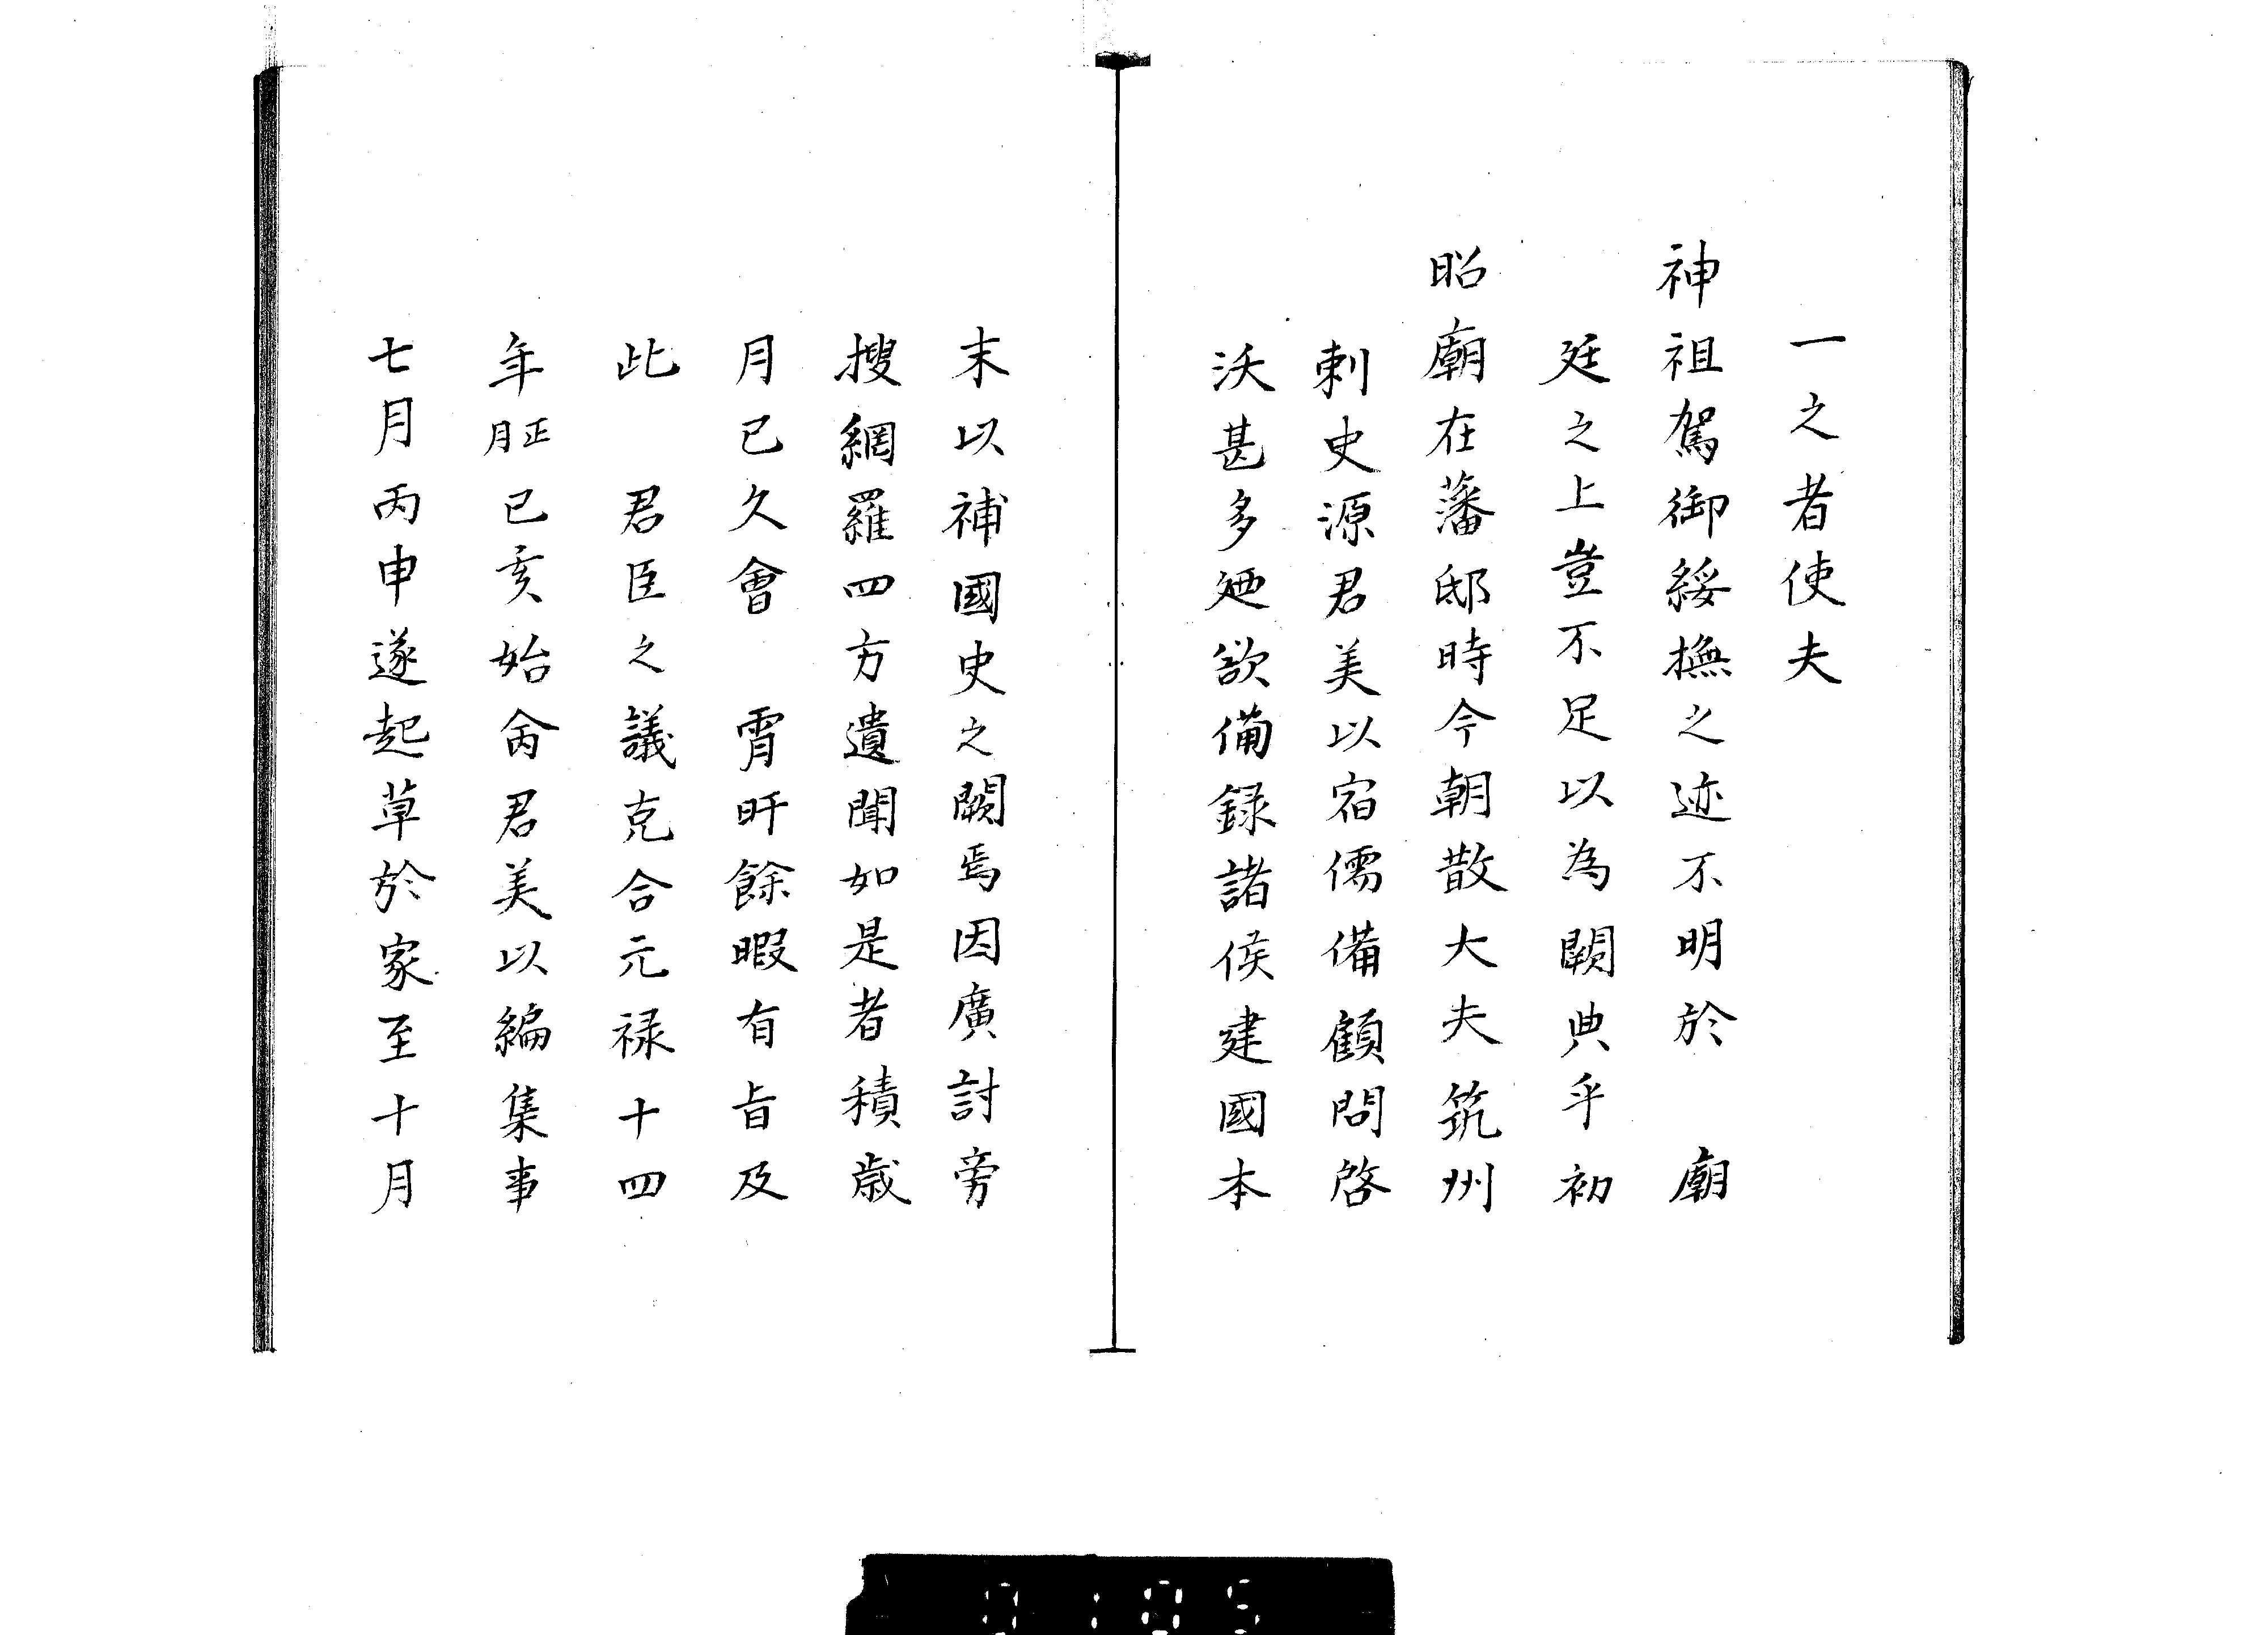 一之者使夫
神祖駕御綏撫之迹不明於　廟
廷之上豈不足以為闕典乎初
昭廟在藩邸時今朝散大夫筑州
刺史源君美以宿儒備顧問啓
沃甚多廼欲備録諸侯建國本
末以補國史之闕焉因廣討旁
搜網羅四方遺聞如是者積歳
月已久會　霄旰餘暇有旨及
此　君臣之議克合元禄十四
年正月已亥始命君美以編集事
七月丙申遂起草於家至十月